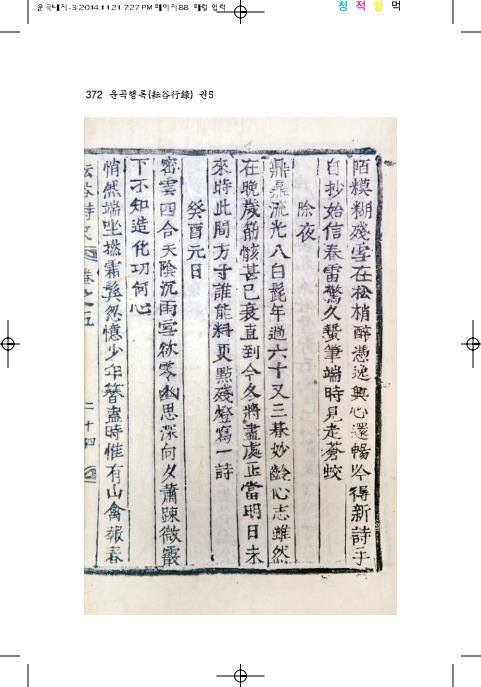 372 운곡행록(耘谷行錄) 권5
청 적 황 먹
陌模糊殘雪在松梢醉憑逸興心還暢吟得新詩手
自抄始信春雷驚久蟄筆端時見走蒼蛟
除夜
鼎鼎流光入白髭年過六十又三朞妙齡心志雖然
在晚歲筋骸甚已衰直到今冬將盡處正當明日未
來時此間方寸誰能料更點殘燈寫一詩
癸酉元日
密雲四合天陰沉雨雪欲零幽思深向夕蕭踈微霰
下不知造化功何心
悄然端坐撚霜髮忽憶少年簪盍時惟有山禽報春
耘谷詩史 卷之五 二十四